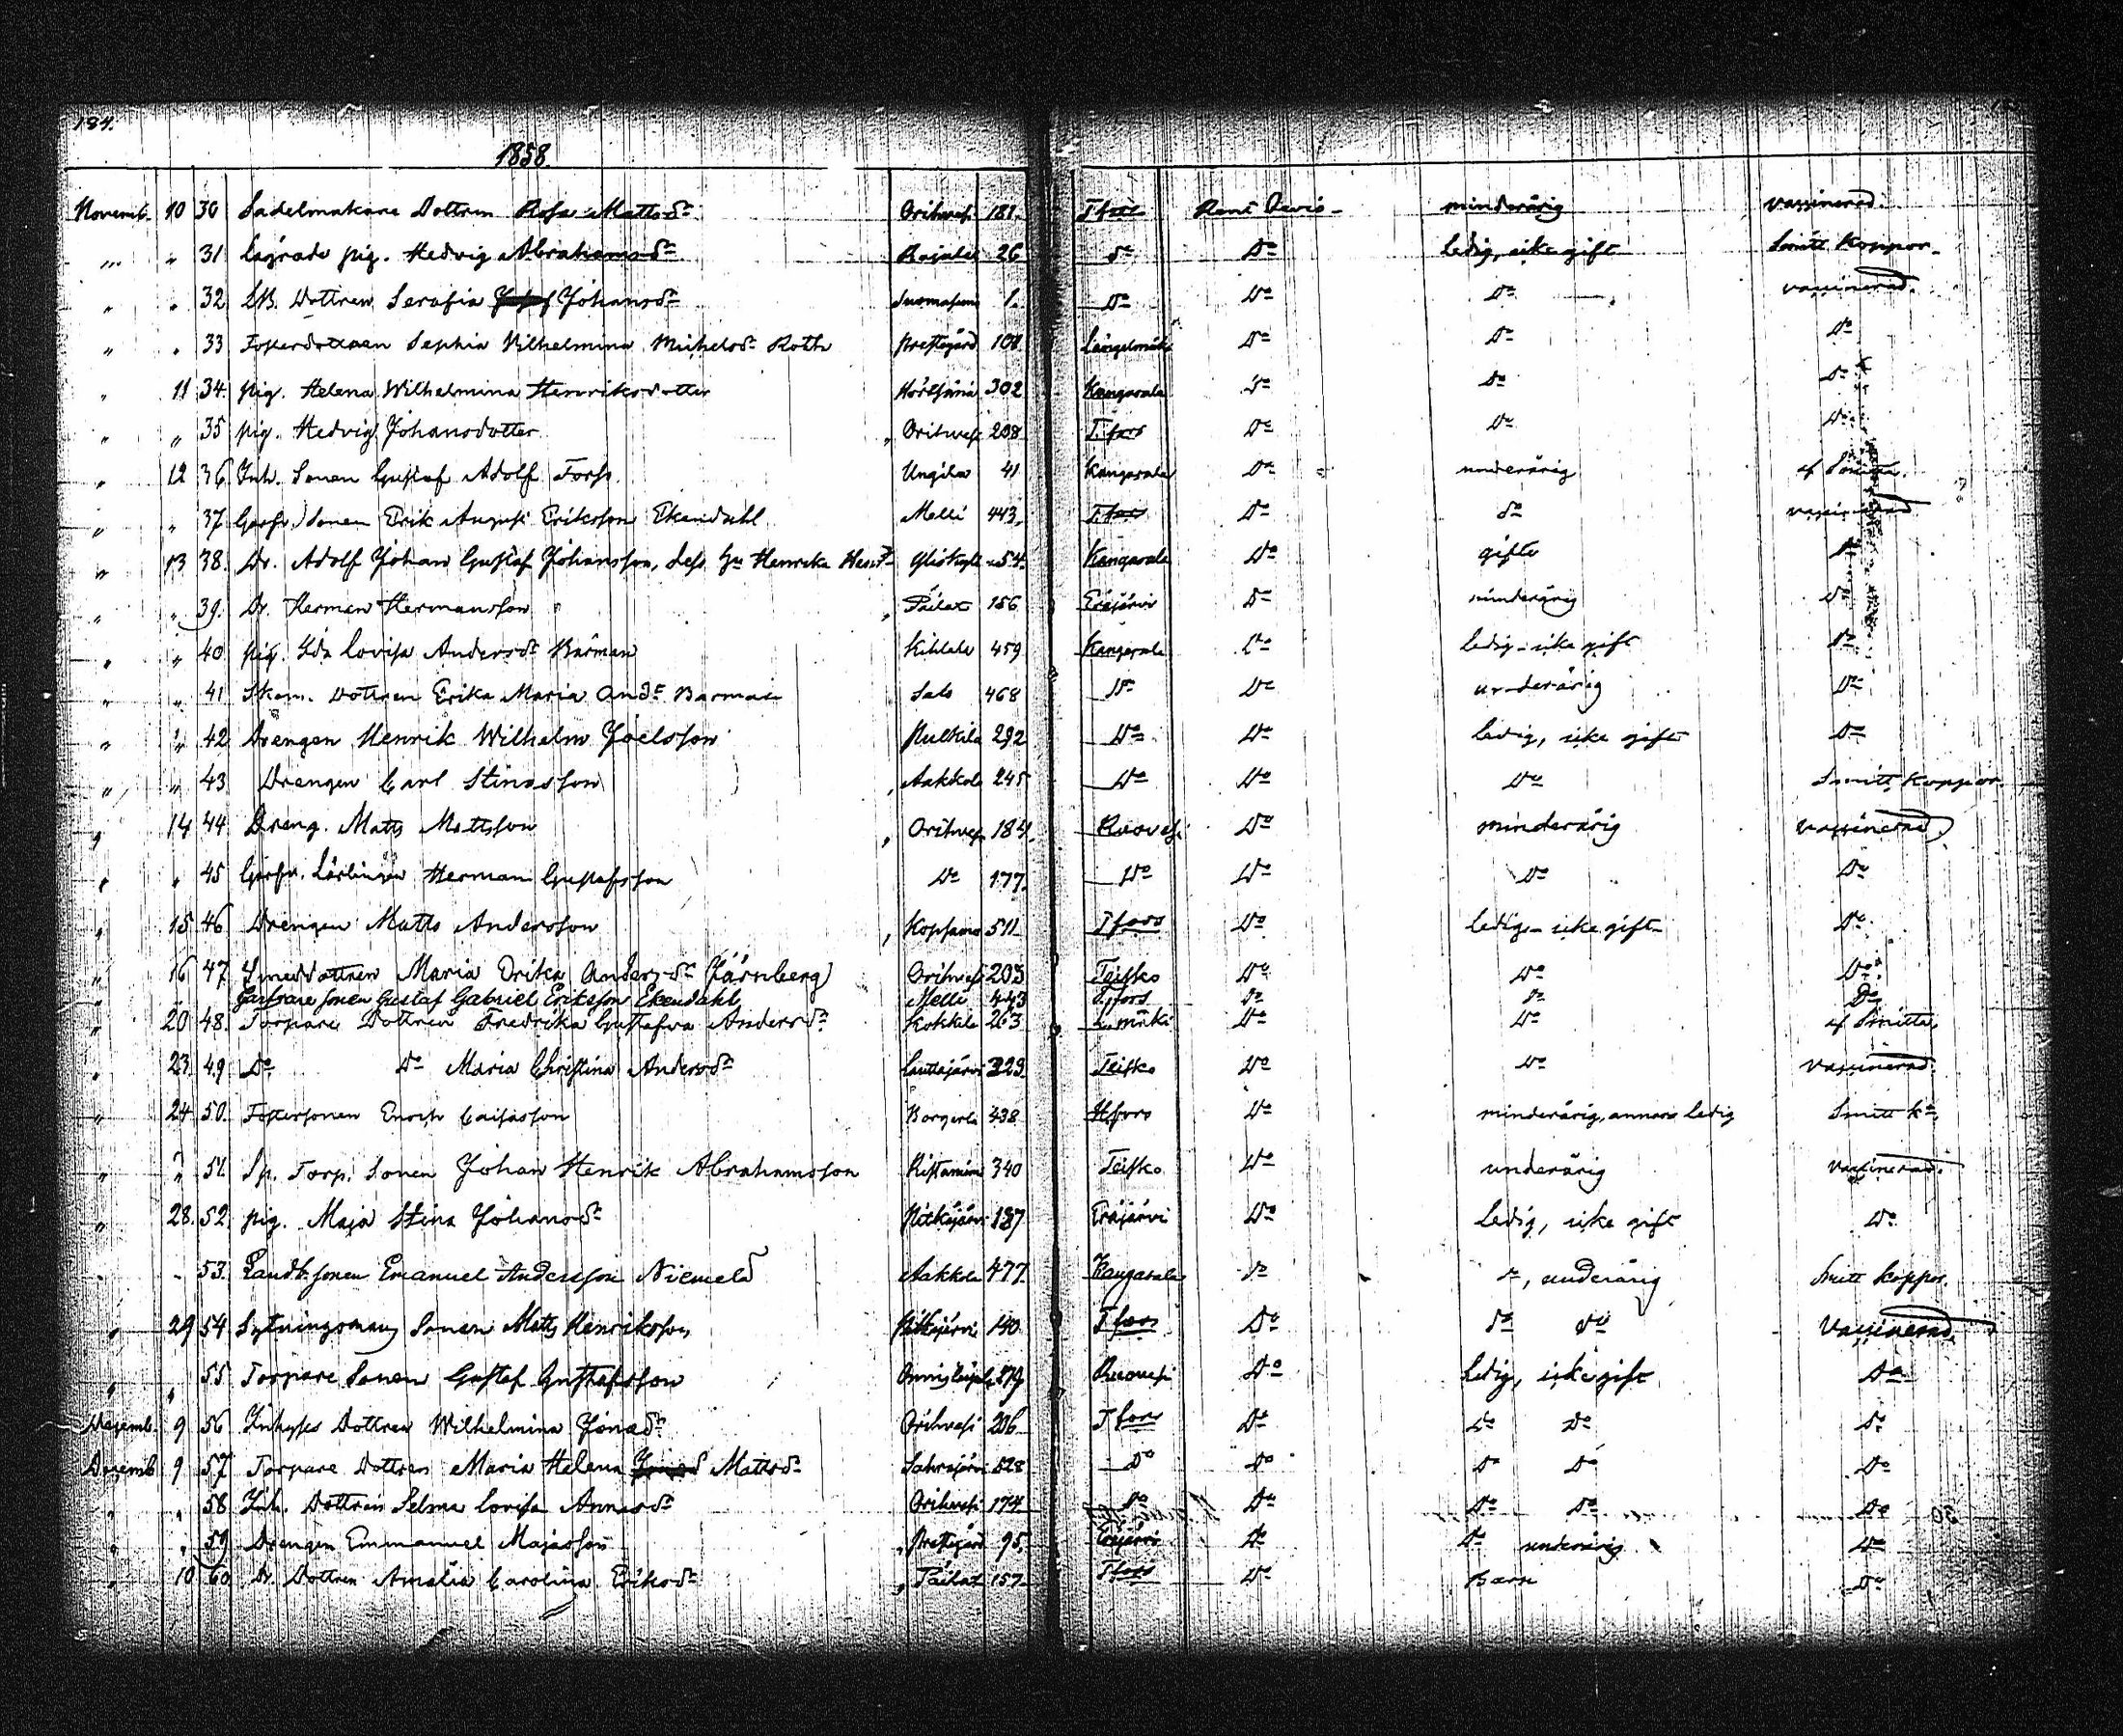 184.
1858.
Novemb. 10 30 Sadelmakare Dottren Rosa Mattsdr Orihvesi 181. T.fors Rent Bevis minderårig vaccinerad.
" " 31 pig. Hedvig Abrahamsdr 26 do Do ledig, icke gift Smitt Koppor
" " 32 Dottren Serafia Johansdr 1. Do Do Do vaccinerad.
" " 33 Fosterdottren Sophia Vilhelmina Michelsdr Roth Prestegård 101 Längelmäki Do Do Do
" 11 34. pig. Helena Wilhelmina Henriksdotter 302 Kangasala Do Do Do
" " 35 pig. Hedvig Johansdotter Orihvesi 208 T.fors Do Do Do
" 12 36 Inh. Sonen Gustaf Adolf Forss. 41 Kangasala Do underårig af Smitta.
" " 37 Sonen Erik August Eriksson Ekendahl Melli 443. T.fors Do do vaccinerad
" 13 38. Dr. Adolf Johan Gustaf Johansson, dess hu Henrika 54. Kangasala Do gifte Do
" " 39. Dr. Herman Hermansson Päilax 156 Eräjärvi Do minderårig Do
" " 40 pig. Ida Lovisa Andersdr Barman 459 Kangasala Do ledig - icke gift Do
" " 41 Dottren Erika Maria Andr Barman Salo 468 Do Do underårig Do
" " 42 Drengen Henrik Wilhelm Joelsson Pulkila 292 Do Do ledig, icke gift Do
" " 43 Drengen Carl Stinasson Aakkola 245 Do Do Do Smitt Koppor
" 14 44 Dreng. Matts Mattsson Orihvesi 184. Ruovesi Do minderårig vaccinerad
" " 45 Herman Gustafsson Do 177. Do Do Do Do
" 15 46 Drengen Matts Andersson 511 T.fors Do ledig - icke gift Do
" 16 47 Smeddottren Maria Ulrika Andersdr (Järnberg) Orihvesi 203 Teisko Do Do Do
Garfvare sonen Gustaf Gabriel Eriksson Ekendahl Melli 443 T.fors Do Do Do
" 20 48. Torpare Dottren Fredrika Gustafva Andersdr Kokkila 263 L.mäki Do Do af Smitta,
" 23 49 Do Do Maria Christina Andersdr 329 Teisko Do Do vaccinerad.
" 24 50. Fostersonen Enoch Caisasson 438 H.fors Do minderårig, annars ledig Smitt k.
" " 51. Sp. Torp. Sonen Johan Henrik Abrahamsson 340 Teisko Do underårig vaccinerad.
" 28. 52. pig. Maja Stina Johansdr Pitkäjärvi 187 Eräjärvi Do ledig, icke gift Do
" " 53. Landb. sonen Emanuel Andersson Niemelä Aakkola 477. Kangasala do do, underårig Smitt koppor.
" 29 54 Sytningsmans Sonen Matts Henriksson Pitkäjärvi 140 T.fors Do do do vaccinerad.
" " 55 Torpare Sonen Gustaf Gustafsson 279 Ruovesi Do ledig, icke gift Do
Decemb. 9 56 Inhyses Dottren Wilhelmina Jonasdr Orihvesi 206 T.fors Do Do Do Do
Decemb 9 57 Torpare Dottren Maria Helena Mattsdr 528 Do Do Do Do Do
" " 58 Inh. Dottren Selma Lovisa Annasdr Orihvesi 174 Do Do Do Do Do
" " 59 Drengen Emmanuel Majasson Prestegård 95. Eräjärvi Do Do underårig Do
" 10 60 Dr. Dottren Amalia Carolina Eriksdr Päilax 157 T.fors Do Barn Do